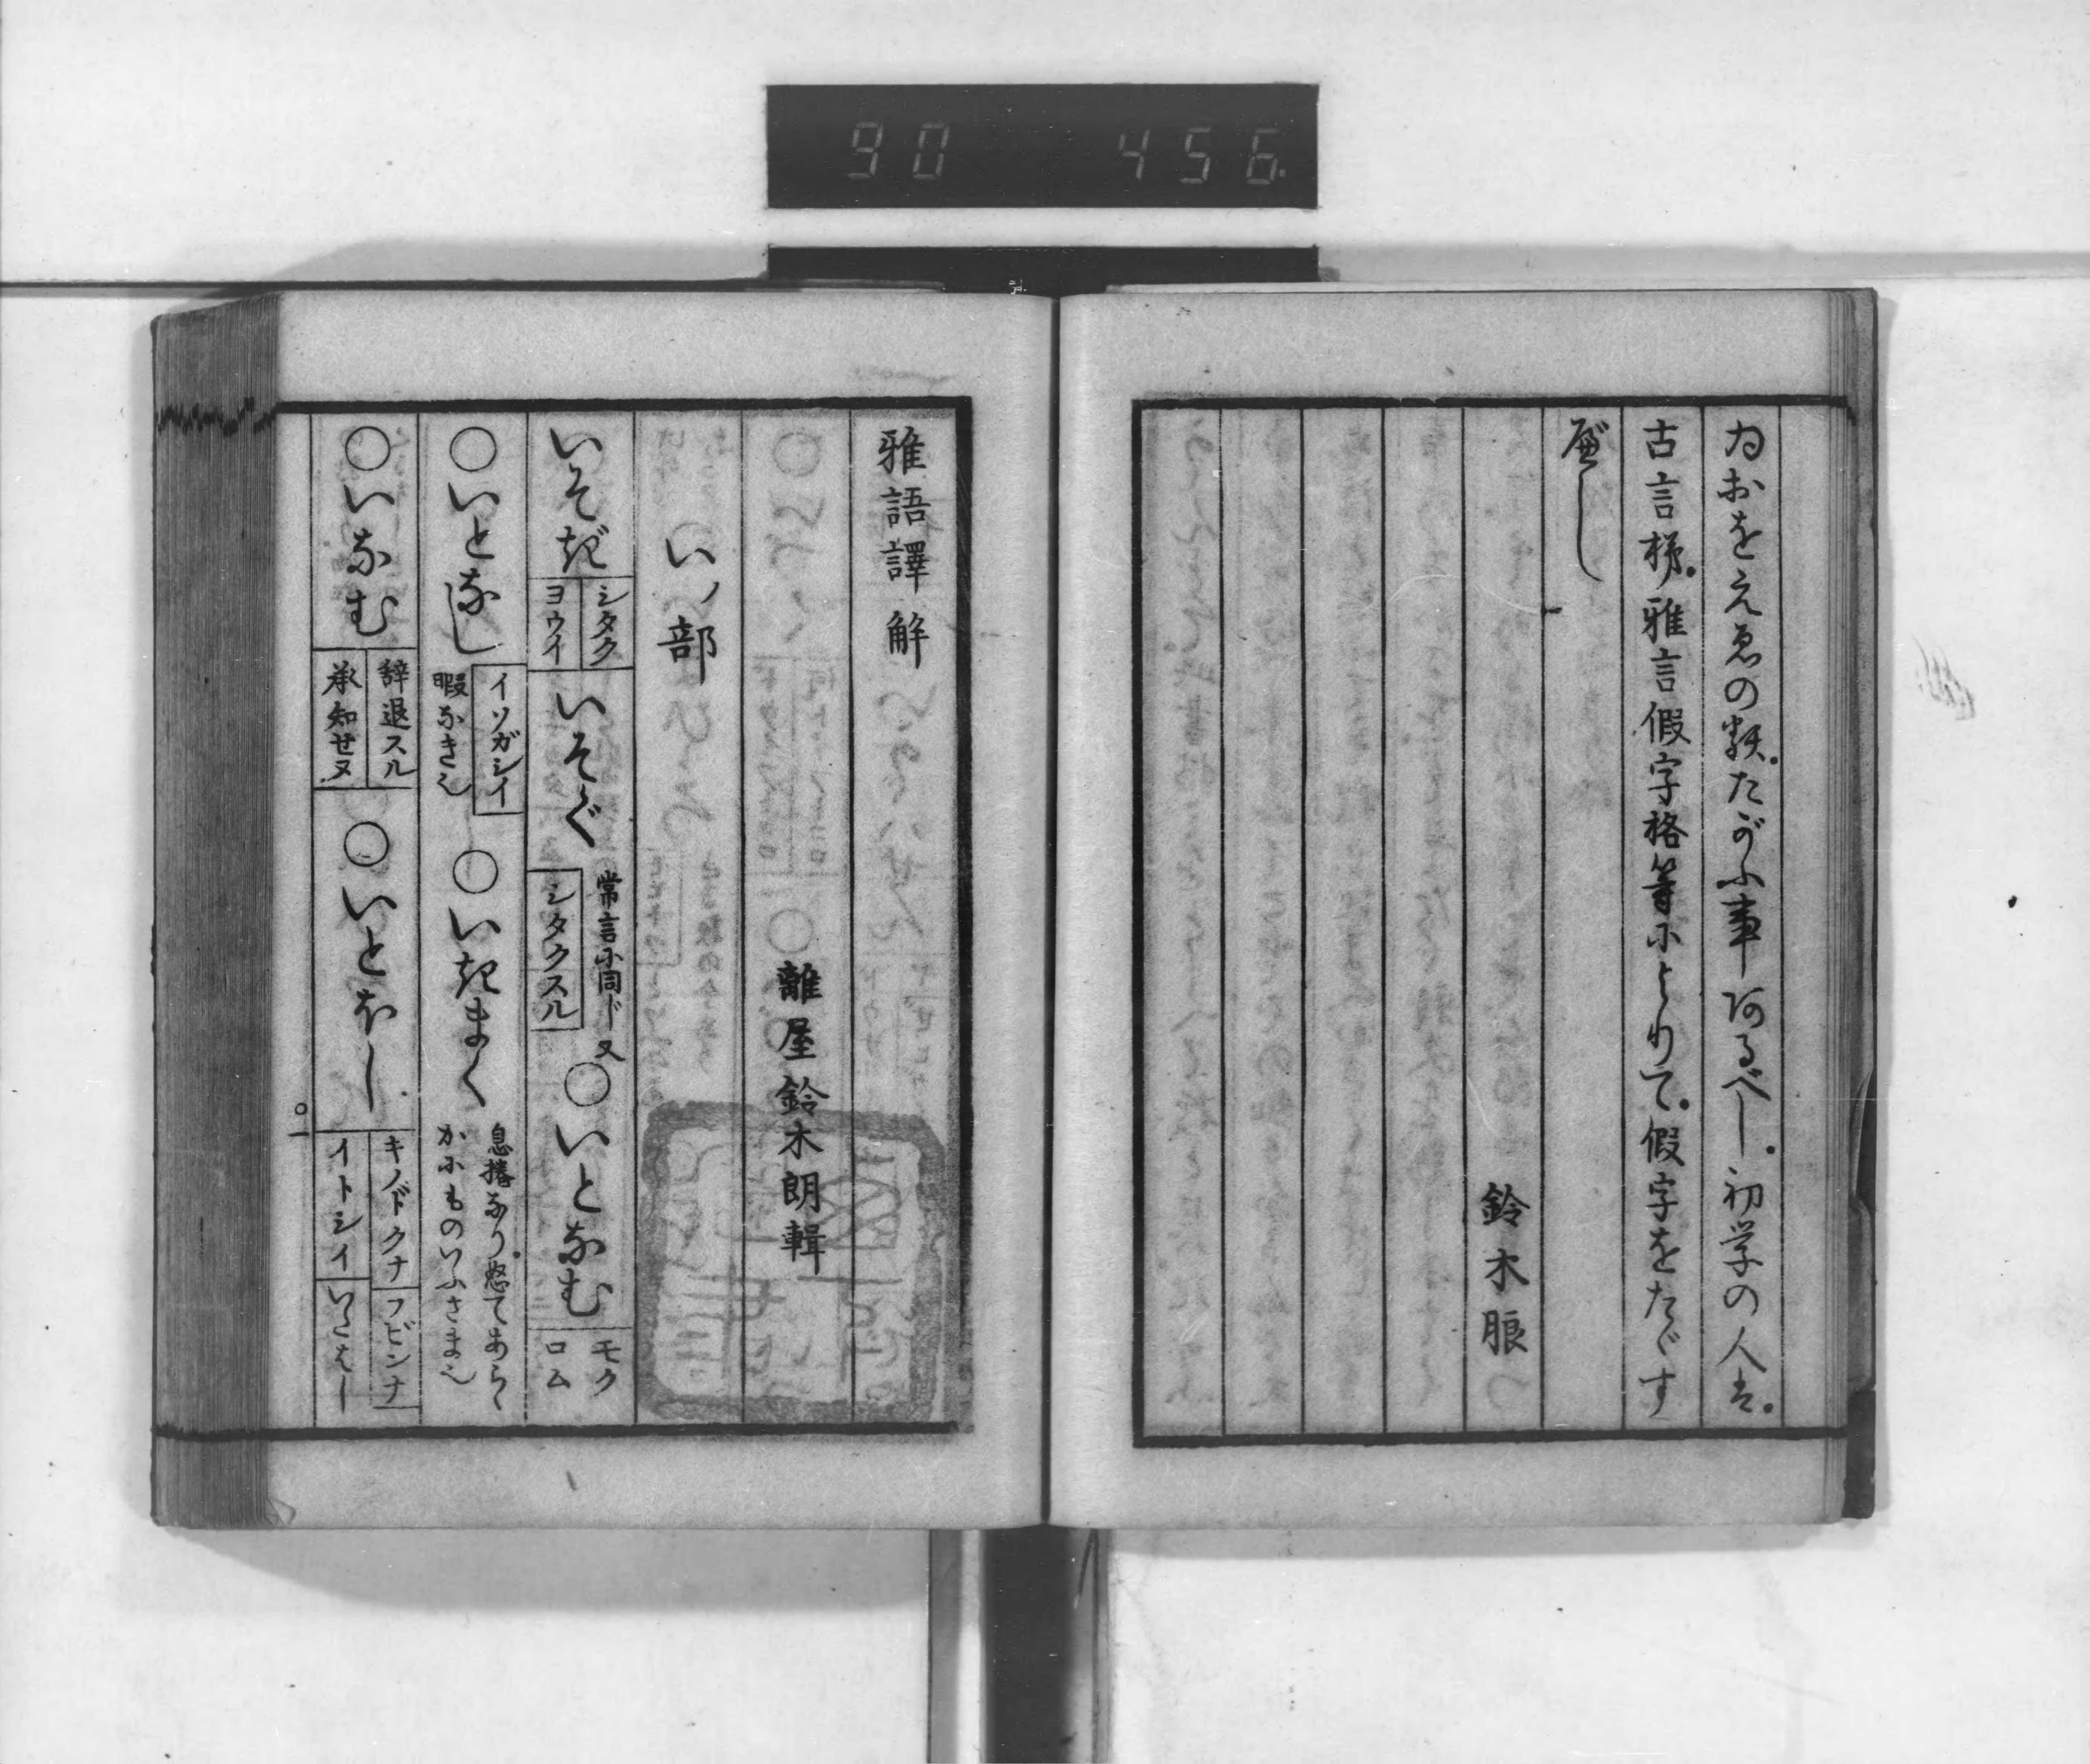 90 456
ゐおをえゑの類。たがふ事あるべし。初学の人は。
古言梯。雅言假字格等によりて。假字をたゞす
べし
鈴木朖
雅語譯解
離屋鈴木朗輯
い ノ部
いそぎ シタク ヨウイ いそぐ 常言に同ジ又 シタクスル ○いとなむ モクロム
○いとなし イソガシイ 暇なき也 ○いきまく 息捲なり。怒てあらゝかにものいふさま也
○いなむ 辞退スル 承知セヌ ○いとほし キノドクナ フビンナ イトシイ
○一